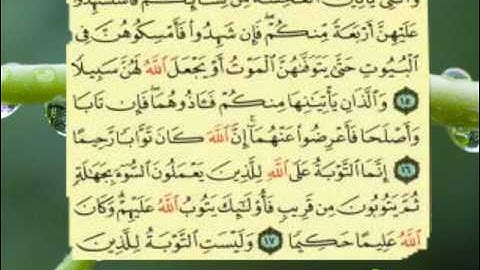 وَٱلَّٰتِي يَأۡتِينَ ٱلۡفَٰحِشَةَ مِن نِّسَآئِكُمۡ فَٱسۡتَشۡهِدُواْ
عَلَيۡهِنَّ أَرۡبَعَةٗ مِّنكُمۡۖ فَإِن شَهِدُواْ فَأَمۡسِكُوهُنَّ فِي
ٱلۡبُيُوتِ حَتَّىٰ يَتَوَفَّىٰهُنَّ ٱلۡمَوۡتُ أَوۡ يَجۡعَلَ ٱللَّهُ لَهُنَّ سَبِيلٗا
١٥ وَٱلَّذَانِ يَأۡتِيَٰنِهَا مِنكُمۡ فَـَٔاذُوهُمَاۖ فَإِن تَابَا
وَأَصۡلَحَا فَأَعۡرِضُواْ عَنۡهُمَآۗ إِنَّ ٱللَّهَ كَانَ تَوَّابٗا رَّحِيمًا
١٦ إِنَّمَا ٱلتَّوۡبَةُ عَلَى ٱللَّهِ لِلَّذِينَ يَعۡمَلُونَ ٱلسُّوٓءَ بِجَهَٰلَةٖ
ثُمَّ يَتُوبُونَ مِن قَرِيبٖ فَأُوْلَٰٓئِكَ يَتُوبُ ٱللَّهُ عَلَيۡهِمۡۗ وَكَانَ
ٱللَّهُ عَلِيمًا حَكِيمٗا ١٧ وَلَيۡسَتِ ٱلتَّوۡبَةُ لِلَّذِينَ